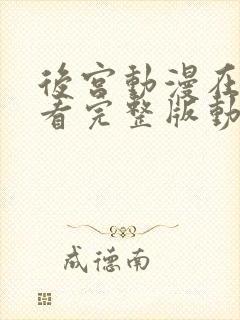 後宮動漫在
看完整版動
成德南